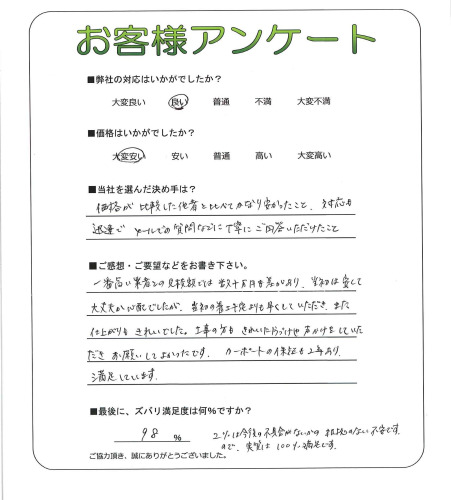 お客様アンケート
■弊社の対応はいかがでしたか?
大変良い 良い 普通 不満 大変不満
■価格はいかがでしたか?
大変安い 安い 普通 高い 大変高い
■当社を選んだ決め手は?
価格が比較した他者と比べてかなり安かったこと、対応も
迅速で メールでの質問などに丁寧にご回答いただけたこと
■ご感想・ご要望などをお書き下さい。
一番高い業者との見積額では数十万円も差があり、当初は安くて
大丈夫か心配でしたが、当初の着工予定よりも早くしていただき、また
仕上がりも きれいでした。工事の方も きれいに片づけや声かけをしていた
だき お願いしてよかったです。 カーポートの保証も2年あり、
満足しています。
■最後に、ズバリ満足度は何%ですか?
98 %
2%は今後の不具合がないかの 根拠のない不安です。
ので、実質は 100%満足です。
ご協力頂き、誠にありがとうございました。